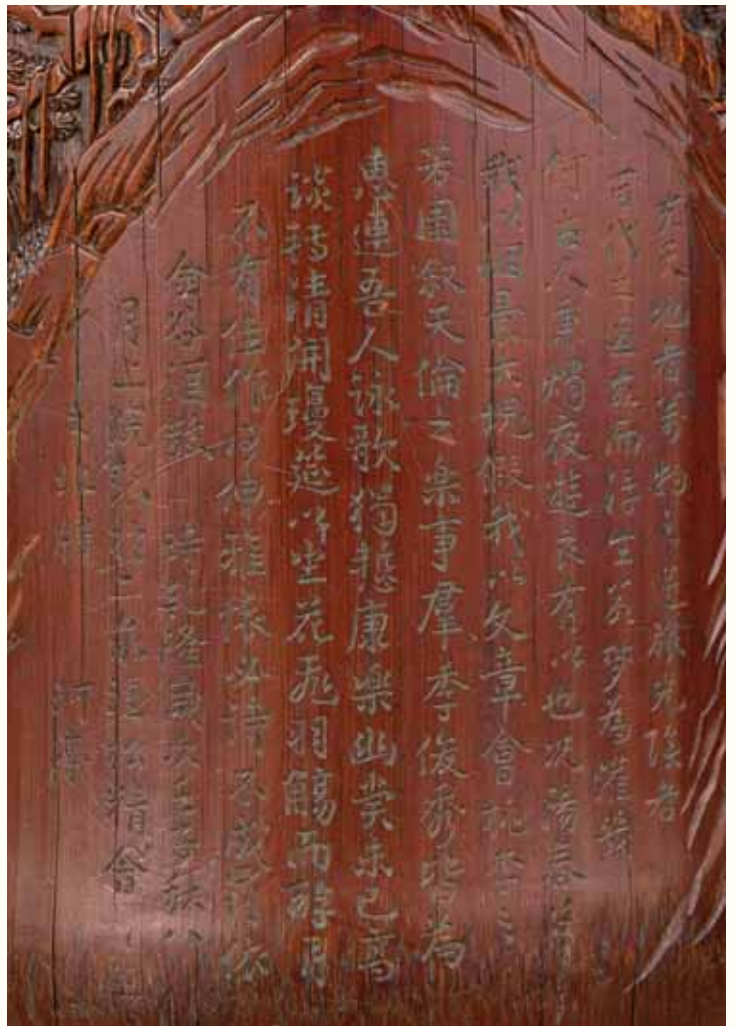 夫天地者萬物之逆旅光陰者
百代之過客而浮生若夢為懽幾
何古人秉燭夜遊良有以也况陽春召
我以烟景大塊假我以文章會桃李之
芳園叙天倫之樂事羣季俊秀皆為
惠連吾人詠歌獨慙康樂幽賞未已高
談轉清開瓊筵以坐花飛羽觴而醉月
不有佳作何伸雅懷如詩不成罰依
金谷酒數 時乾隆歲次壬子秋八
月上浣 於精舍